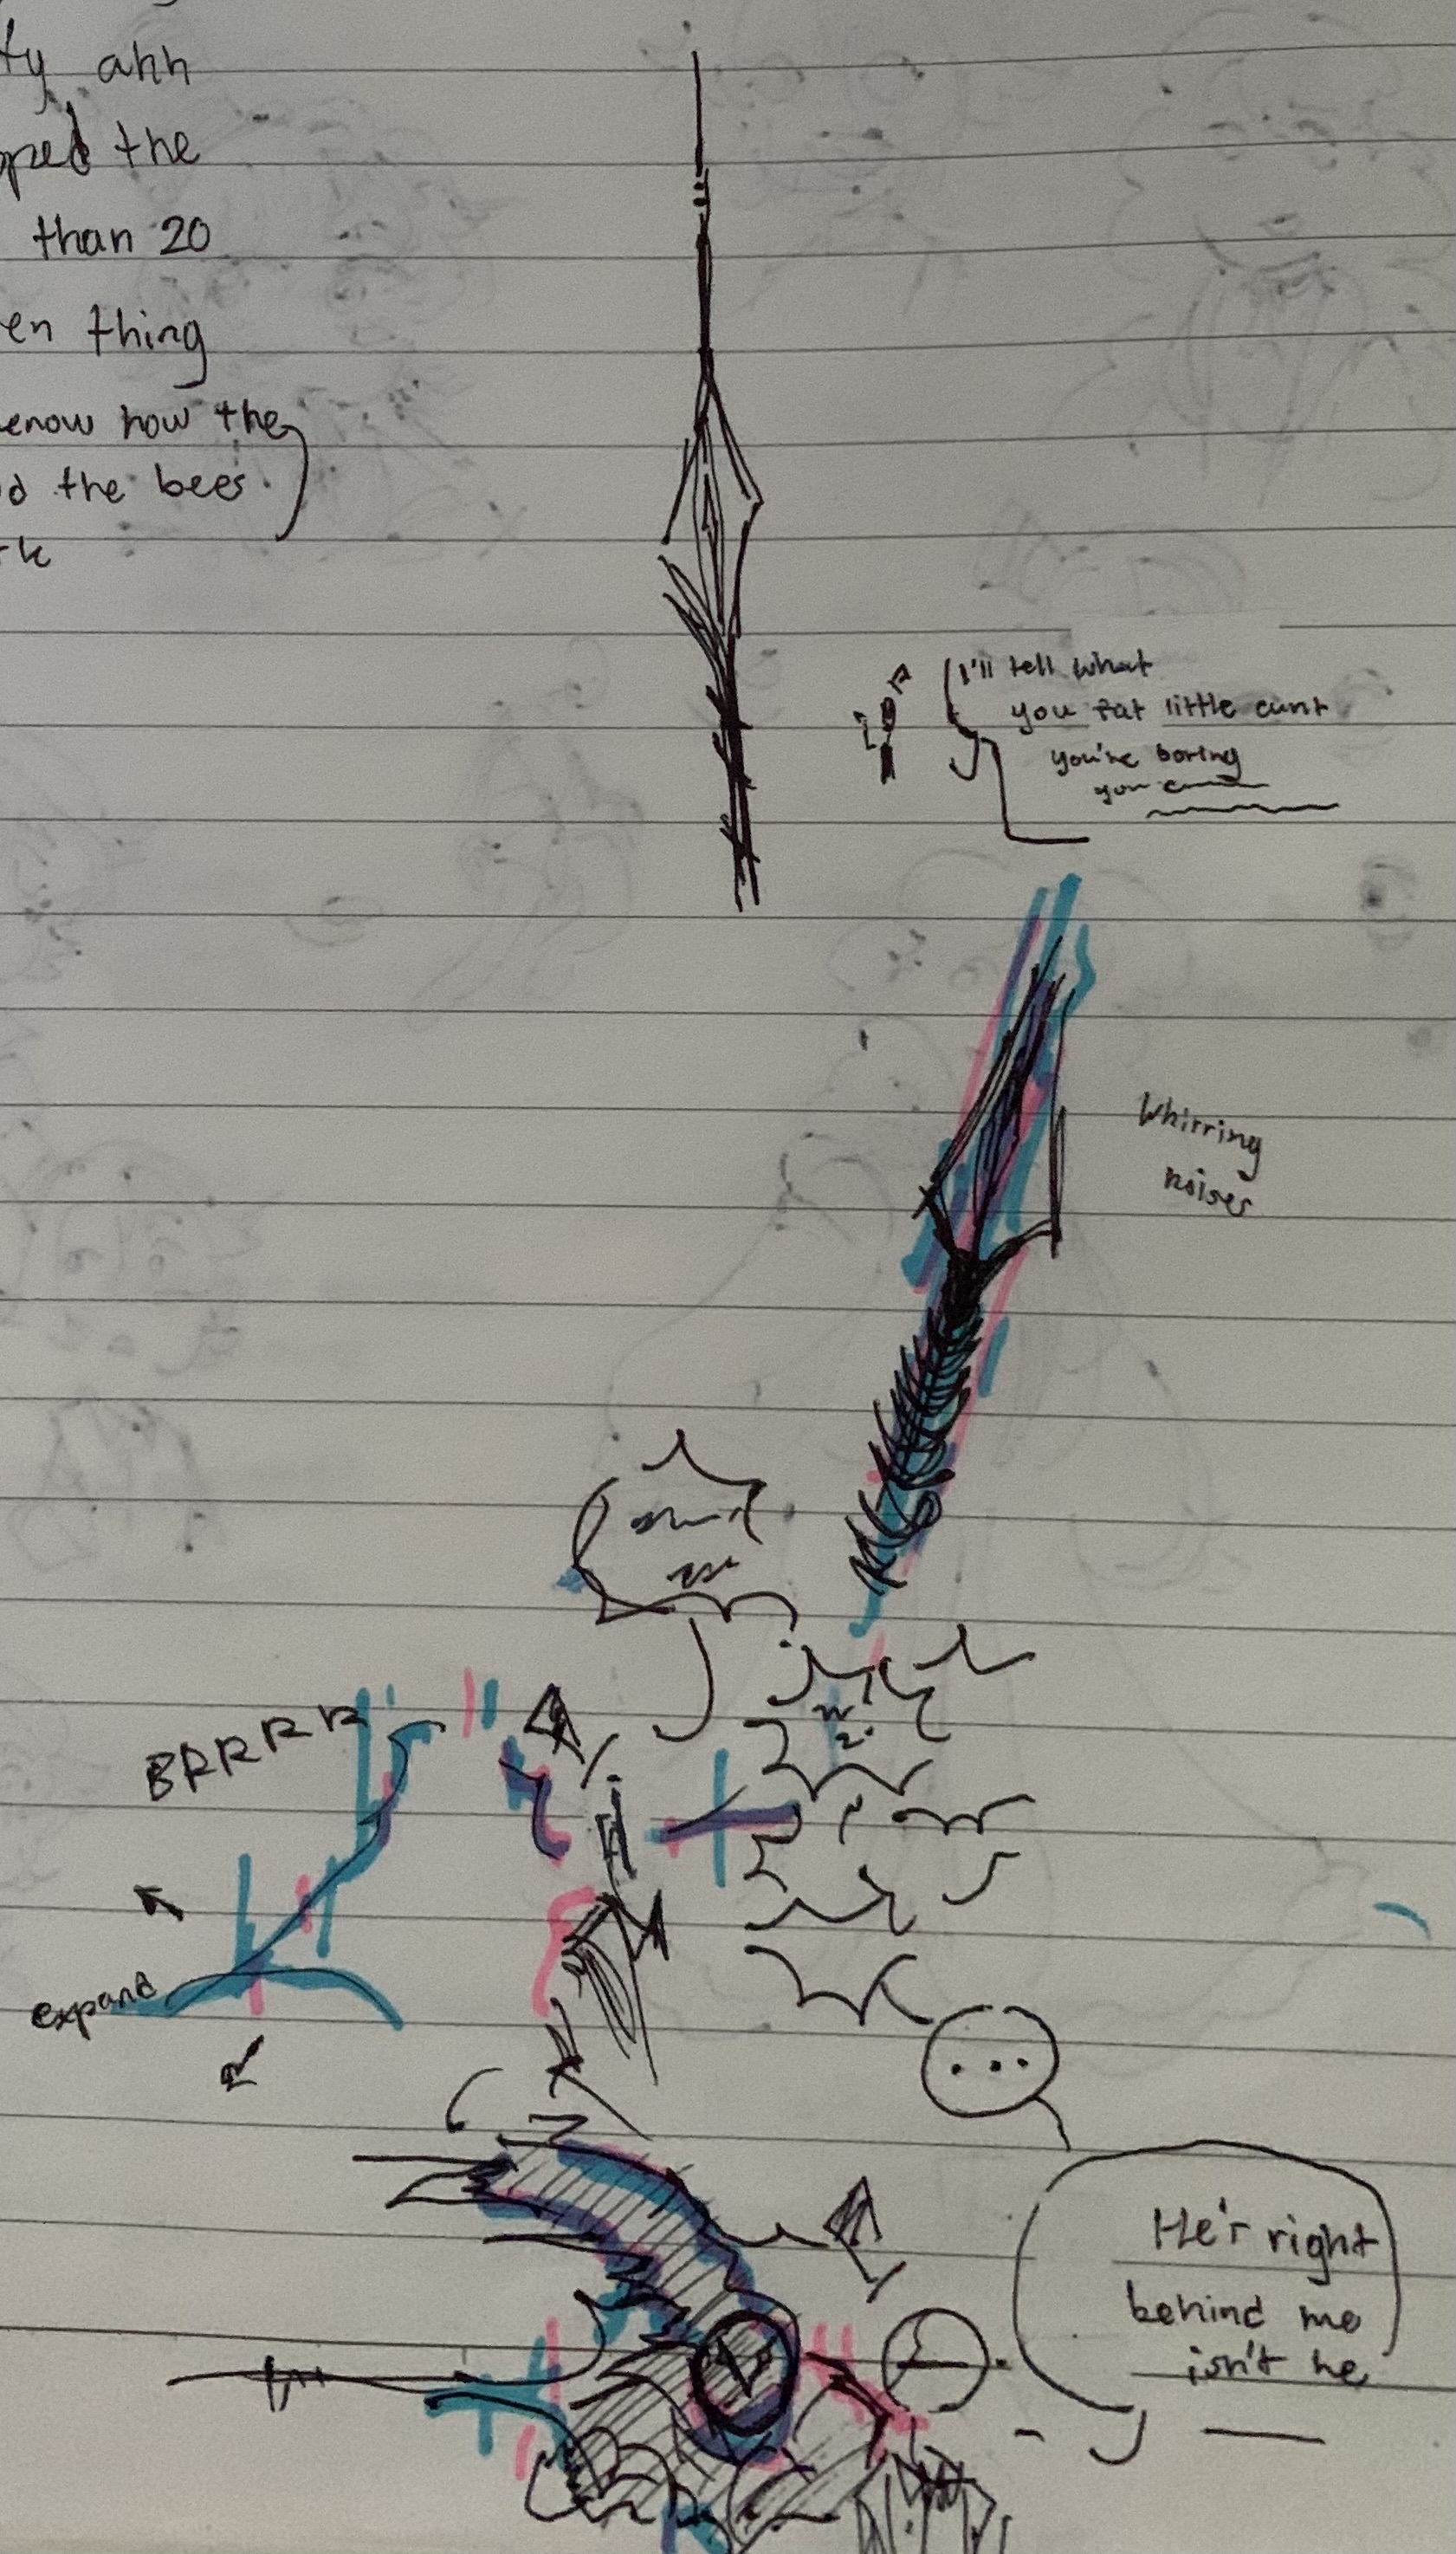 ty ahh
pped the
than 20
en thing
enow how the
d the bees
rk
I'll tell what
you fat little cunt
you're boring
you
Whirring
noises
BRRRR
expand
...
He'r right
behind me
isn't he